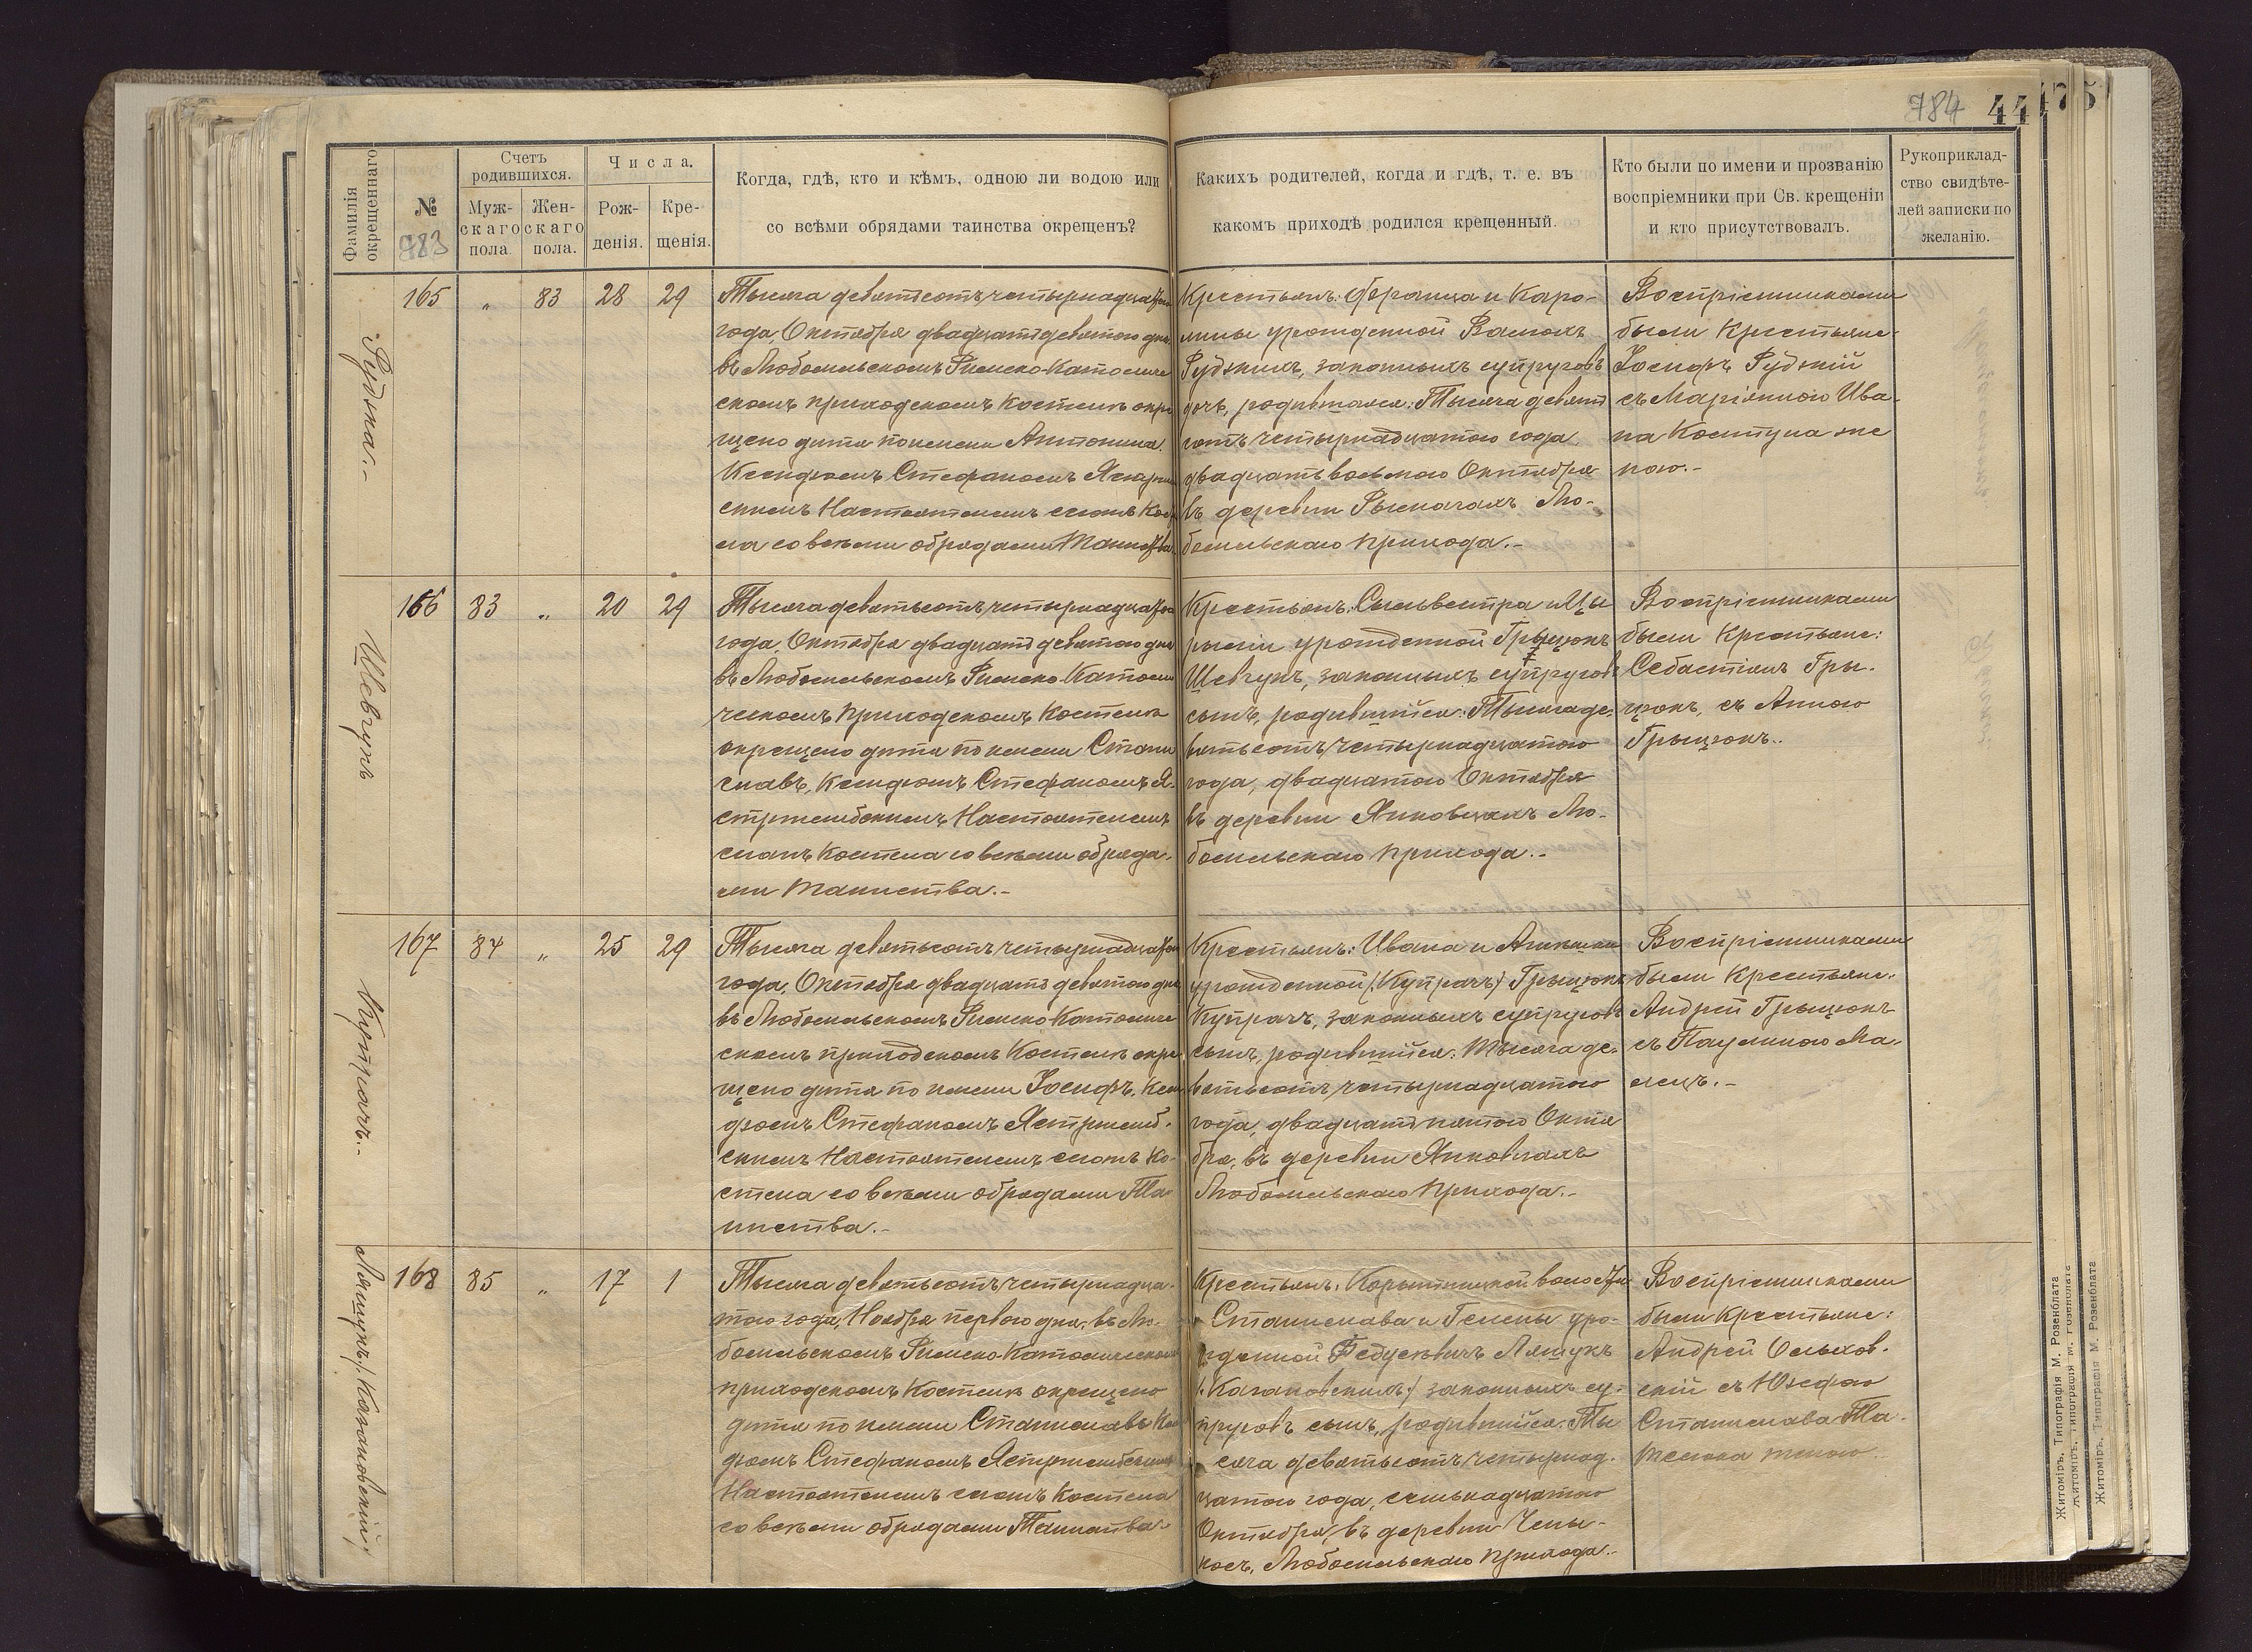 784 44 475
Фамилія окрещеннаго
№
783
Счетъ родившихся.
Мужскаго пола.
Женскаго пола.
Числа.
Рожденія.
Крещенія.
Когда, гдѣ, кто и кѣмъ, одною ли водою или
со всѣми обрядами таинства окрещенъ?
Какихъ родителей, когда и гдѣ, т. е. въ
какомъ приходѣ родился крещенный.
Кто были по имени и прозванію
воспріемники при Св. крещеніи
и кто присутствовалъ.
Рукоприклад-
ство свидѣте-
лей записки по
желанію.
Рудзка.-
165 „ 83 28 29
Тысяча девятьсотъ четырнадцатаго
года, Октября двадцать девятого дня
въ Любомльскомъ Римско-Католиче
скомъ приходскомъ Костелѣ окре
щено дитя по имени Антонина
Ксендзомъ Стефаномъ
скимъ Настоятелемъ сего
ла со всѣми обрядами Таинства
Крестьянъ: Франца и Каро-
лины урожденной
Рудзкихъ, законныхъ супруговъ
дочь, родившаяся: Тысяча девять
сотъ четырнадцатого года
двадцать восьмого Октября
въ деревни Рымачахъ Лю-
бомльскаго прихода.-
Воспріемниками
были Крестьяне:
Іосифъ Рудзкій
съ Маріянною Ива-
на Ковтуна же
ною.-
Шевчукъ
166 83 „ 20 29
Тысяча девятьсотъ четырнадцатаго
года, Октября двадцать девятого дня
въ Любомльскомъ Римско-Католи
ческомъ приходскомъ Костелѣ
окрещено дитя по имени Стани
славъ, Ксендзомъ Стефаномъ Я-
стржембскимъ Настоятелемъ
сего Костела со всѣми обряда-
ми Таинства.-
Крестьянъ: Сильвестра и Цы
рыліи урожденной Грыцюкъ
Шевчукъ, законныхъ супруговъ
сынъ, родившійся: Тысяча де-
вятьсотъ четырнадцатого
года, двадцатого Октября
въ деревни Янковцахъ Лю-
бомльскаго прихода.-
Воспріемниками
были Крестьяне:
Себастіянъ Гры-
цюкъ, съ Анною
Грыцюкъ.-
Купрачъ.-
167 84 „ 25 29
Тысяча девятьсотъ четырнадцатаго
года, Октября двадцать девятого дня
въ Любомльскомъ Римско-Католиче
скомъ приходскомъ Костелѣ окре
щено дитя по имени Іосифъ, Ксен
дзомъ Стефаномъ Ястржемб-
скимъ Настоятелемъ сего Ко-
стела со всѣми обрядами Та-
инства.-
Крестьянъ: Ивана и
урожденной (Купрачъ) Грыцюкъ
Купрачъ, законныхъ супруговъ
сынъ, родившійся: Тысяча де-
вятьсотъ четырнадцатого
года, двадцать пятого Октя
бря, въ деревни Янковцахъ
Любомльскаго прихода.-
Воспріемниками
были Крестьяне:
Андрей Грыцюкъ
съ Паулиною Ма-
лецъ.-
Ляшукъ (Кагановскій)
168 85 „ 17 1
Тысяча девятьсотъ четырнадца-
того года, Ноября первого дня, въ Лю-
бомльскомъ Римско-Католическомъ
приходскомъ Костелѣ окрещено
дитя по имени Станиславъ Ксен
дзомъ Стефаномъ Ястржембскимъ
Настоятелемъ сего Костела
со всѣми обрядами Таинства
Крестьянъ: Корытницкой волости
Станислава и Гелены уро-
жденной Федусевичъ Ляшукъ
(Кагановскихъ) законныхъ су-
пруговъ сынъ, родившійся: Ты
сяча девятьсотъ четырнад-
цатого года, семнадцатого
Октября, въ деревни
Любомльскаго прихода.-
Воспріемниками
были Крестьяне:
Андрей Ольхов-
скій съ Юзефою
Станислава
женою.-
Житоміръ, Типографія М. Розенблата
Житоміръ, Типографія М. Розенблата
Житоміръ, Типографія М. Розенблата